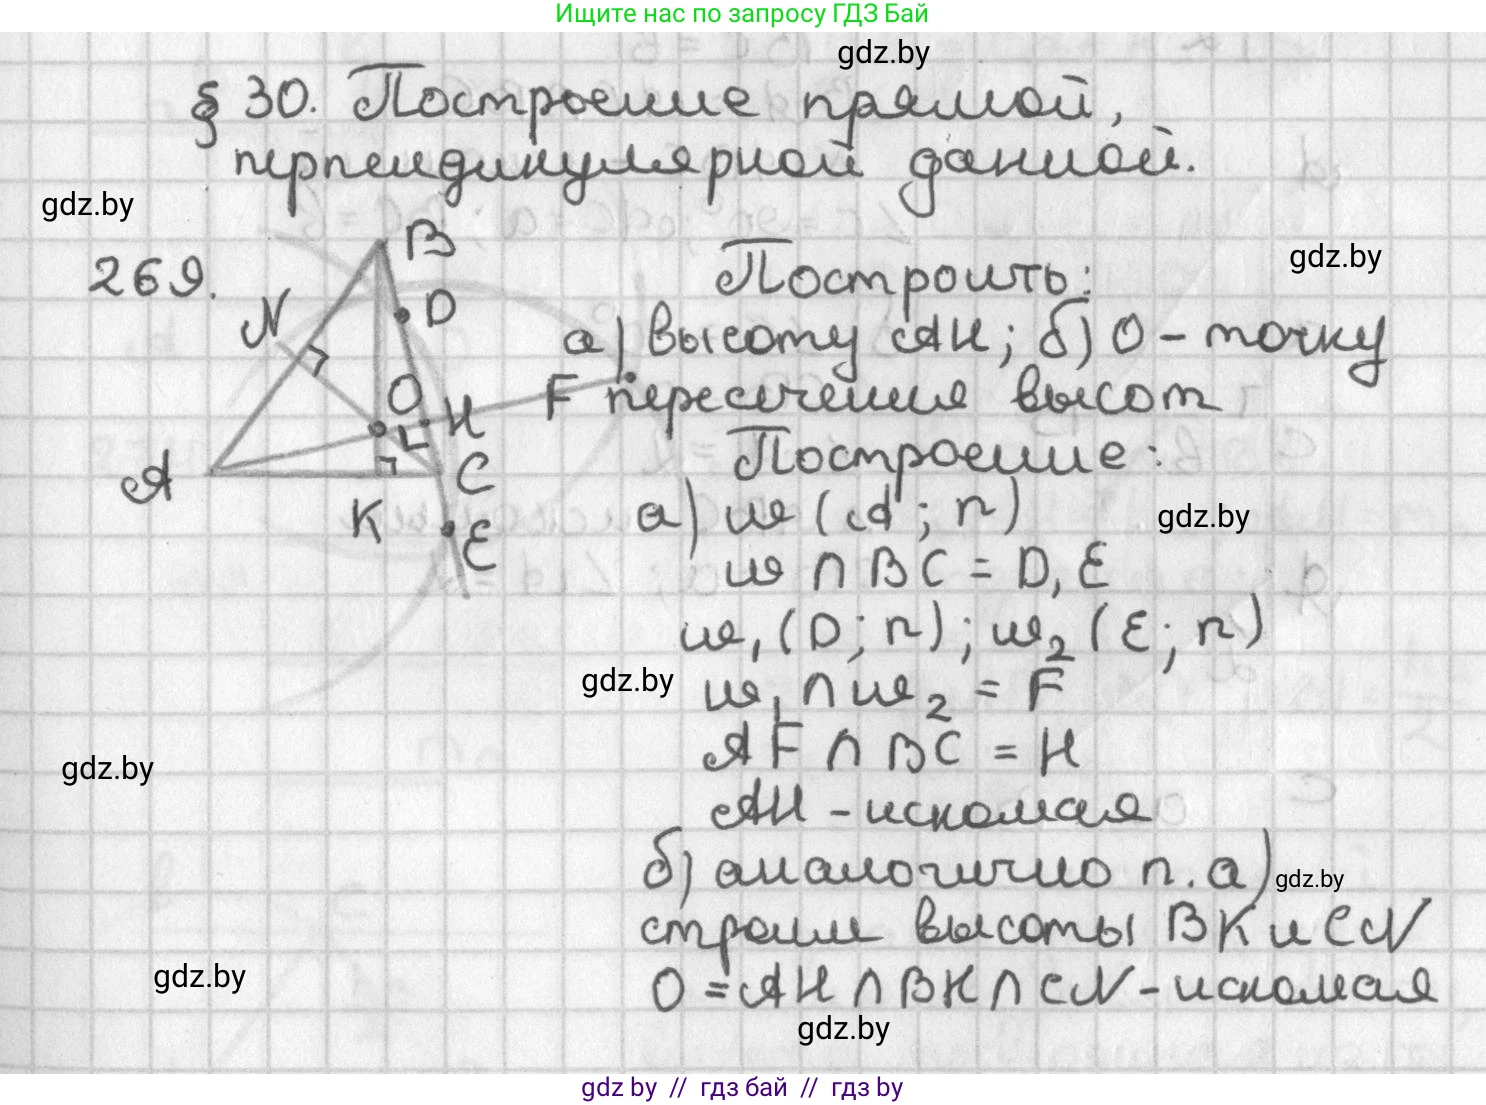 Ищите нас по запросу ГДЗ Бай
gdz.by
§ 30. Построение прямой,
перпендикулярной данной.
gdz.by
269.
B
N
D
O
H
F
A
C
K
E
Построить:
gdz.by
а) высоту AH; б) O - точку
пересечения высот
Построение:
а) ω (A; r)
gdz.by
ω ∩ BC = D, E
ω₁ (D; r); ω₂ (E; r)
gdz.by
ω₁ ∩ ω₂ = F
AF ∩ BC = H
gdz.by
AH - искомая
б) аналогично п. а)
gdz.by
строим высоты BK и CN
gdz.by
O = AH ∩ BK ∩ CN - искомая
gdz.by
gdz by // гдз бай // гдз by